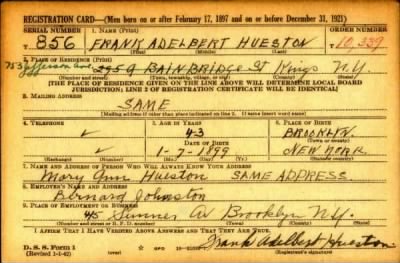 REGISTRATION CARD—(Men born on or after February 17, 1897 and on or before December 31, 1921)
SERIAL NUMBER 1. NAME (Print) ORDER NUMBER
T 856 FRANK ADELBERT HUESTON
(First) (Middle) (Last)
2. PLACE OF RESIDENCE (Print)
753 Jefferson Ave. BAINBRIDGE ST Kings N.Y.
(Number and street) (Town, township, village, or city) (County) (State)
[THE PLACE OF RESIDENCE GIVEN ON THE LINE ABOVE WILL DETERMINE LOCAL BOARD
JURISDICTION; LINE 2 OF REGISTRATION CERTIFICATE WILL BE IDENTICAL]
3. MAILING ADDRESS
SAME
(Mailing address if other than place indicated on line 2. If same insert word same)
4. TELEPHONE 5. AGE IN YEARS 6. PLACE OF BIRTH
43 BROOKLYN
DATE OF BIRTH (Town or county)
1-7-1899 NEW YORK
(Exchange) (Number) (Mo.) (Day) (Yr.) (State or country)
7. NAME AND ADDRESS OF PERSON WHO WILL ALWAYS KNOW YOUR ADDRESS
Mary Ann Hueston SAME ADDRESS
8. EMPLOYER'S NAME AND ADDRESS
Bernard Johnston
9. PLACE OF EMPLOYMENT OR BUSINESS
45 Sumner Av Brooklyn N.Y.
(Number and street or R. F. D. number) (Town) (County) (State)
I AFFIRM THAT I HAVE VERIFIED ABOVE ANSWERS AND THAT THEY ARE TRUE.
D. S. S. Form 1
(Revised 1-1-42) GPO Frank Adelbert Hueston